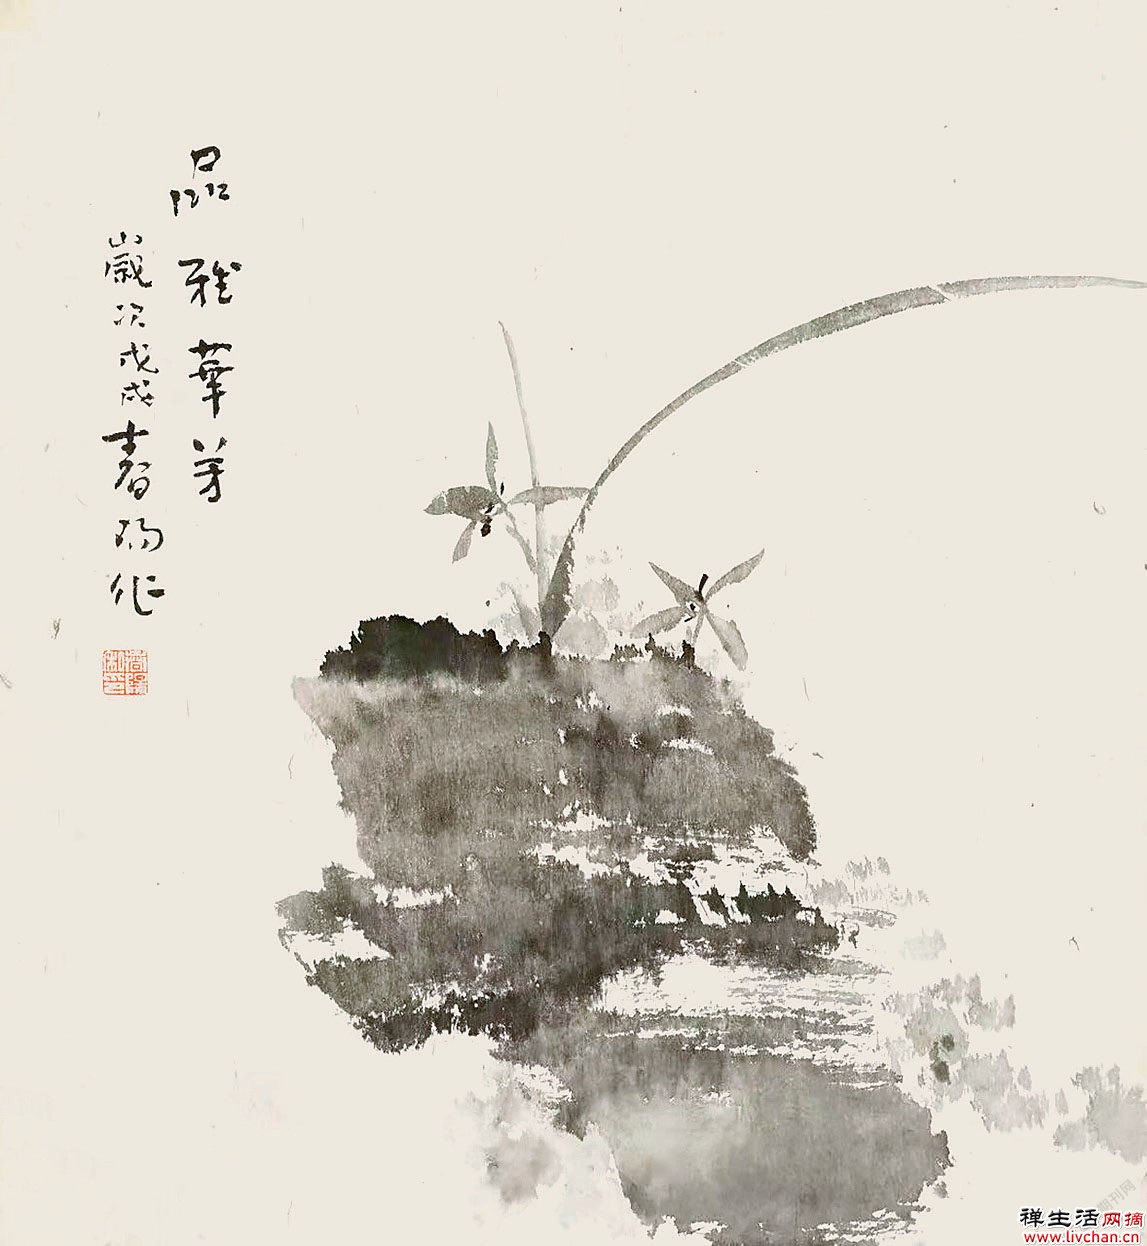 品雅華芳
歲次戊戌春陽作
禅生活网摘
www.livchan.cn